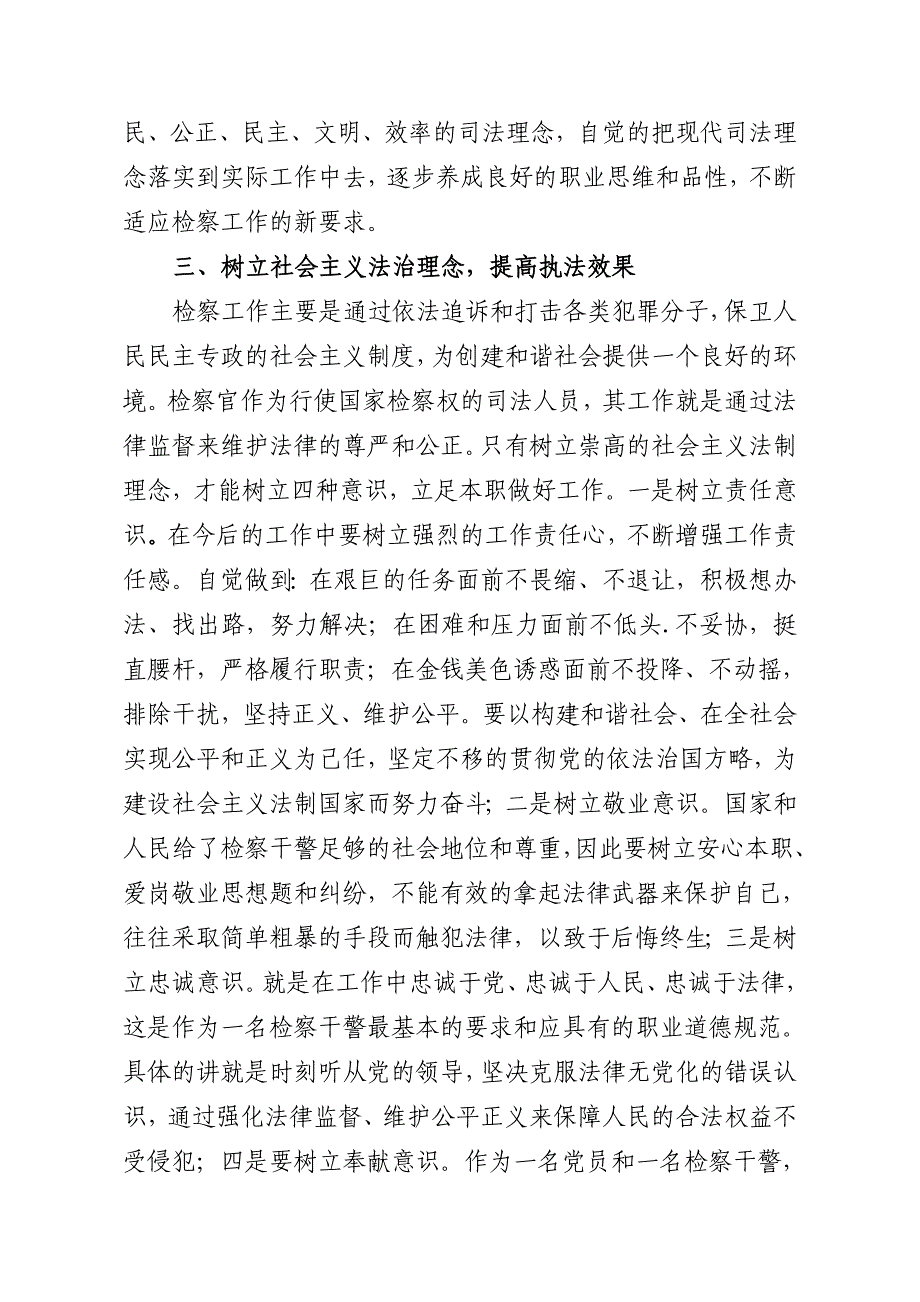 民、公正、民主、文明、效率的司法理念，自觉的把现代司法理
念落实到实际工作中去，逐步养成良好的职业思维和品性，不断
适应检察工作的新要求。
三、树立社会主义法治理念，提高执法效果
检察工作主要是通过依法追诉和打击各类犯罪分子，保卫人
民民主专政的社会主义制度，为创建和谐社会提供一个良好的环
境。检察官作为行使国家检察权的司法人员，其工作就是通过法
律监督来维护法律的尊严和公正。只有树立崇高的社会主义法制
理念，才能树立四种意识，立足本职做好工作。一是树立责任意
识。在今后的工作中要树立强烈的工作责任心，不断增强工作责
任感。自觉做到：在艰巨的任务面前不畏缩、不退让，积极想办
法、找出路，努力解决；在困难和压力面前不低头.不妥协，挺
直腰杆，严格履行职责；在金钱美色诱惑面前不投降、不动摇，
排除干扰，坚持正义、维护公平。要以构建和谐社会、在全社会
实现公平和正义为己任，坚定不移的贯彻党的依法治国方略，为
建设社会主义法制国家而努力奋斗；二是树立敬业意识。国家和
人民给了检察干警足够的社会地位和尊重，因此要树立安心本职、
爱岗敬业思想题和纠纷，不能有效的拿起法律武器来保护自己，
往往采取简单粗暴的手段而触犯法律，以致于后悔终生；三是树
立忠诚意识。就是在工作中忠诚于党、忠诚于人民、忠诚于法律，
这是作为一名检察干警最基本的要求和应具有的职业道德规范。
具体的讲就是时刻听从党的领导，坚决克服法律无党化的错误认
识，通过强化法律监督、维护公平正义来保障人民的合法权益不
受侵犯；四是要树立奉献意识。作为一名党员和一名检察干警，